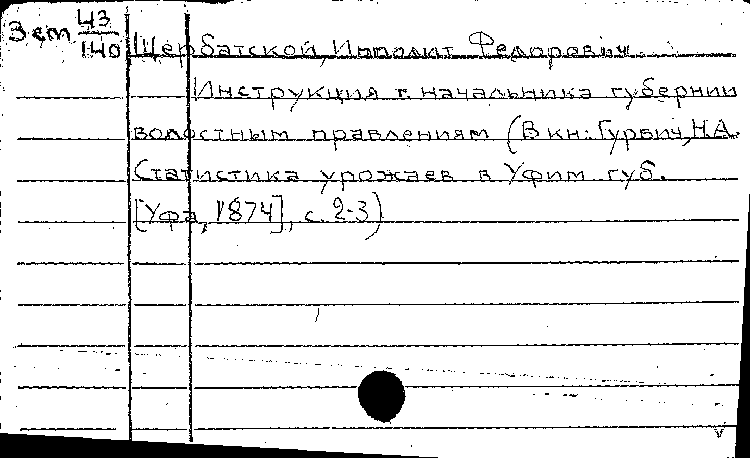 3 ет 43/140
Щербатской, Ипполит Федорович.
Инструкция г. начальника губернии
волостным правлениям (В кн: Гурвич, Н.А.
Статистика урожаев в Уфим. губ.
[Уфа, 1874], с. 2-3)